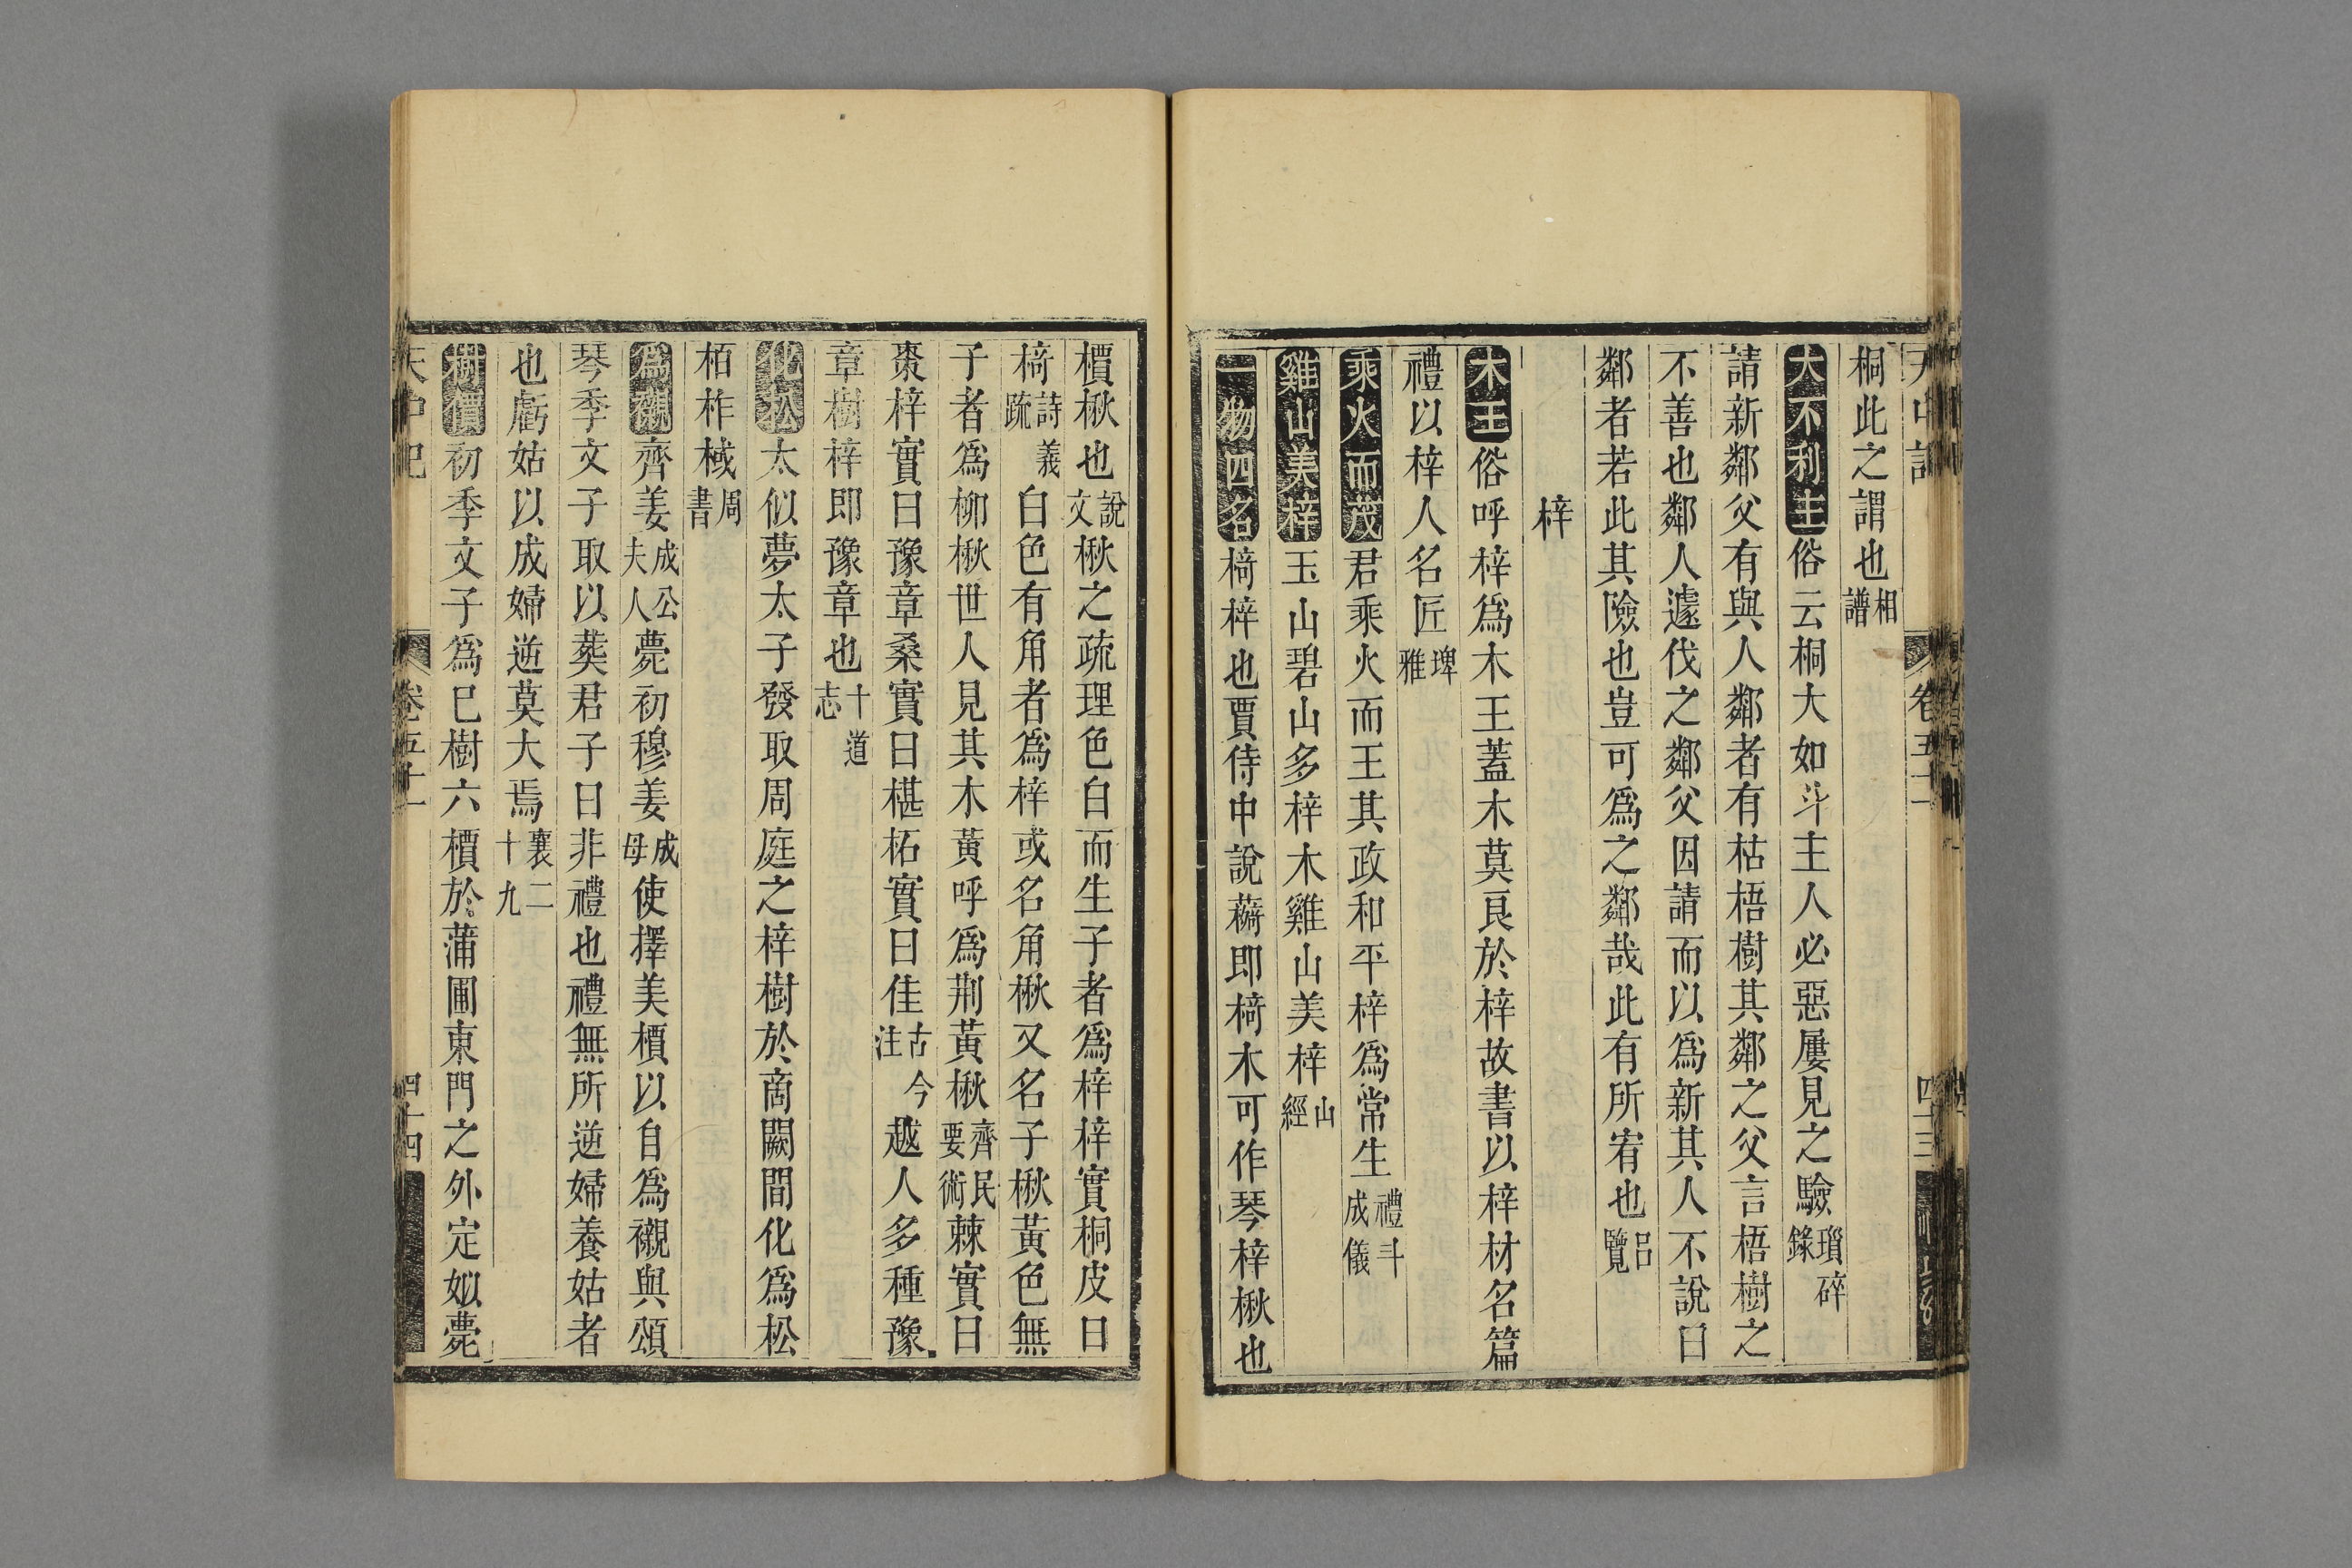 天中記 卷五十一 四十三
桐此之謂也相譜
大不利主俗云桐大如斗主人必惡屢見之驗瑣碎錄
請新鄰父有與人鄰者有枯梧樹其鄰之父言梧樹之
不善也鄰人遽伐之鄰父因請而以為新其人不說曰
鄰者若此其險也豈可為之鄰哉此有所宥也呂覽
梓
木王俗呼梓為木王蓋木莫良於梓故書以梓材名篇
禮以梓人名匠埤雅
乘火而茂君乘火而王其政和平梓為常生禮斗威儀
雞山美梓玉山碧山多梓木雞山美梓山經
一物四名椅梓也賈侍中說虉即椅木可作琴梓楸也
檟楸也說文楸之疏理色白而生子者為梓梓實桐皮曰
椅詩義疏白色有角者為梓或名角楸又名子楸黃色無
子者為柳楸世人見其木黃呼為荆黃楸齊民要術棘實曰
棗梓實曰豫章桑實曰椹柘實曰佳古今注越人多種豫
章樹梓即豫章也十道志
化松太似夢太子發取周庭之梓樹於商闕間化為松
栢柞棫周書
為櫬齊姜成公夫人薨初穆姜成母使擇美檟以自為櫬與頌
琴季文子取以葬君子曰非禮也禮無所逆婦養姑者
也虧姑以成婦逆莫大焉襄二十九
樹檟初季文子為己樹六檟於蒲圃東門之外定姒薨
天中記 卷五十一 四十四